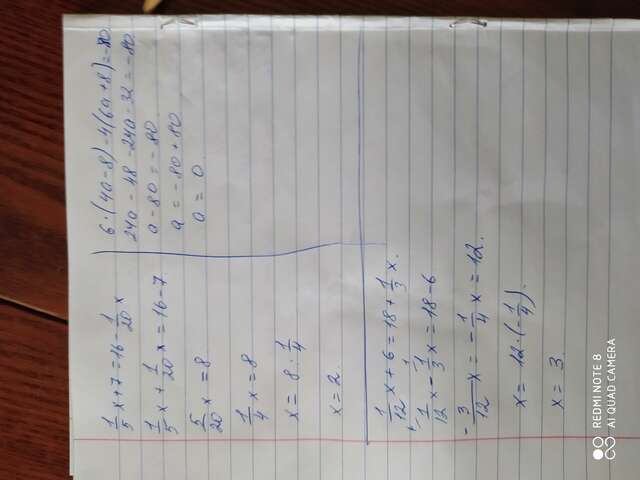 1/5 x + 7 = 16 - 1/20 x
1/5 x + 1/20 x = 16 - 7
5/20 x = 8
1/4 x = 8
x = 8 : 1/4
x = 2
6·(4a-8)-4(6a+8)=-80
24a - 48 - 24a - 32 = -80
a - 80 = -80
a = -80 + 80
a = 0
1/12 x + 6 = 18 + 1/3 x.
1/12 x - 1/3 x = 18 - 6
- 3/12 x = - 1/4 x = 12.
x = 12 · (-1/4).
x = 3.
REDMI NOTE 8
AI QUAD CAMERA